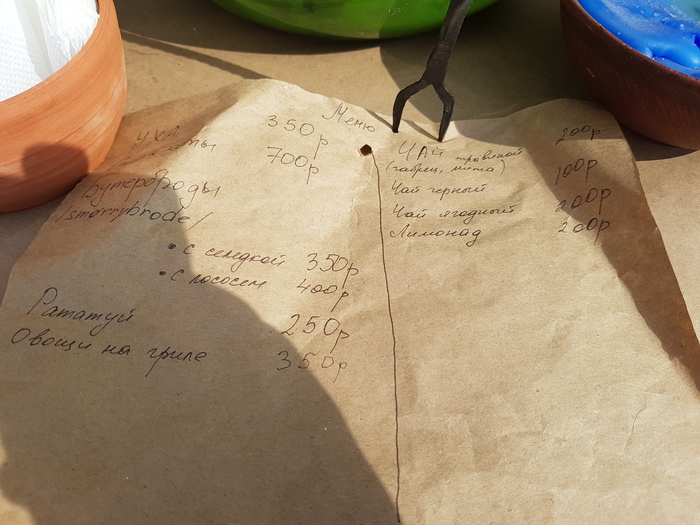 Меню
уха 350р
700р
бутерброды
/smorrybrode/
• с селедкой 350р
• с лососем 400р
Рататуй 250р
Овощи на гриле 350р
ЧАЙ травяной 200р
(чабрец, мята)
Чай черный 100р
Чай ягодный 200р
Лимонад 200р